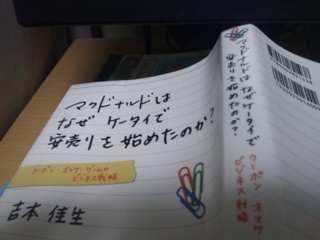 マクドナルドは
なぜ ケータイで
安売りを始めたのか?
クーポン オマケ ゲームの
ビジネス戦略
吉本佳生
マクドナルドは なぜ ケータイで
安売りを始めたのか?
クーポン オマケ
ビジネス戦略